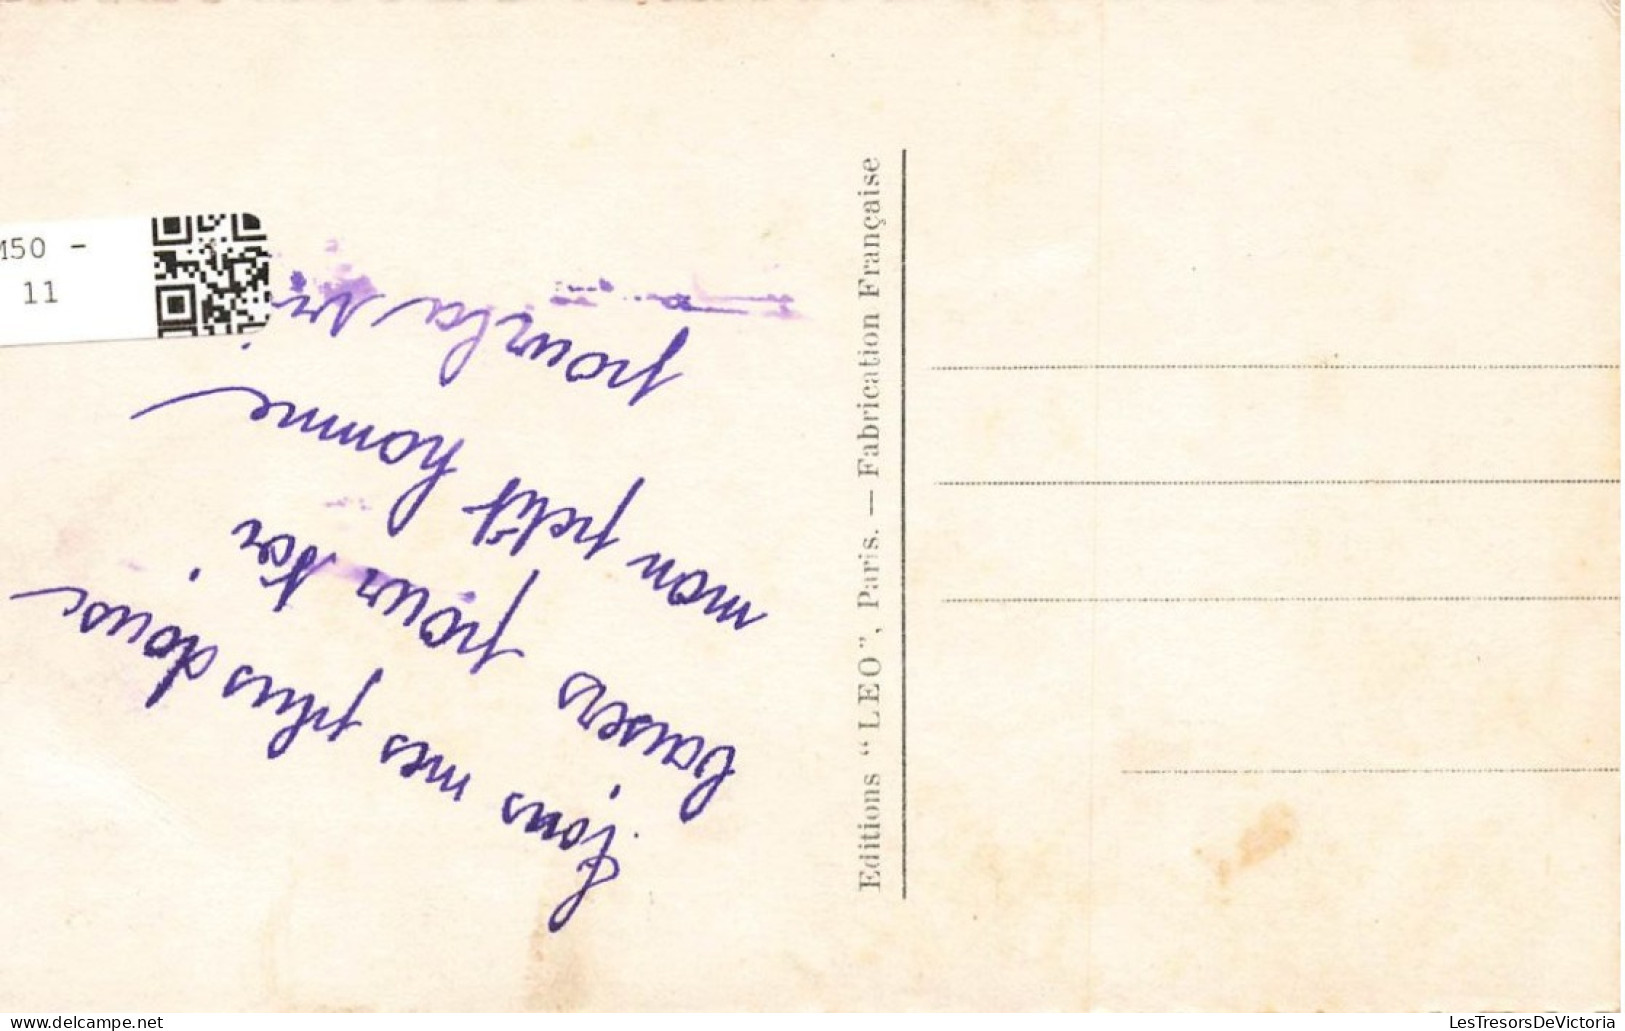 Tous mes plus doux
baisers pour toi
mon petit homme
pour la vi
Editions “LEO”, Paris. — Fabrication Française
M50 -
11
www.delcampe.net
LesTresorsDeVictoria